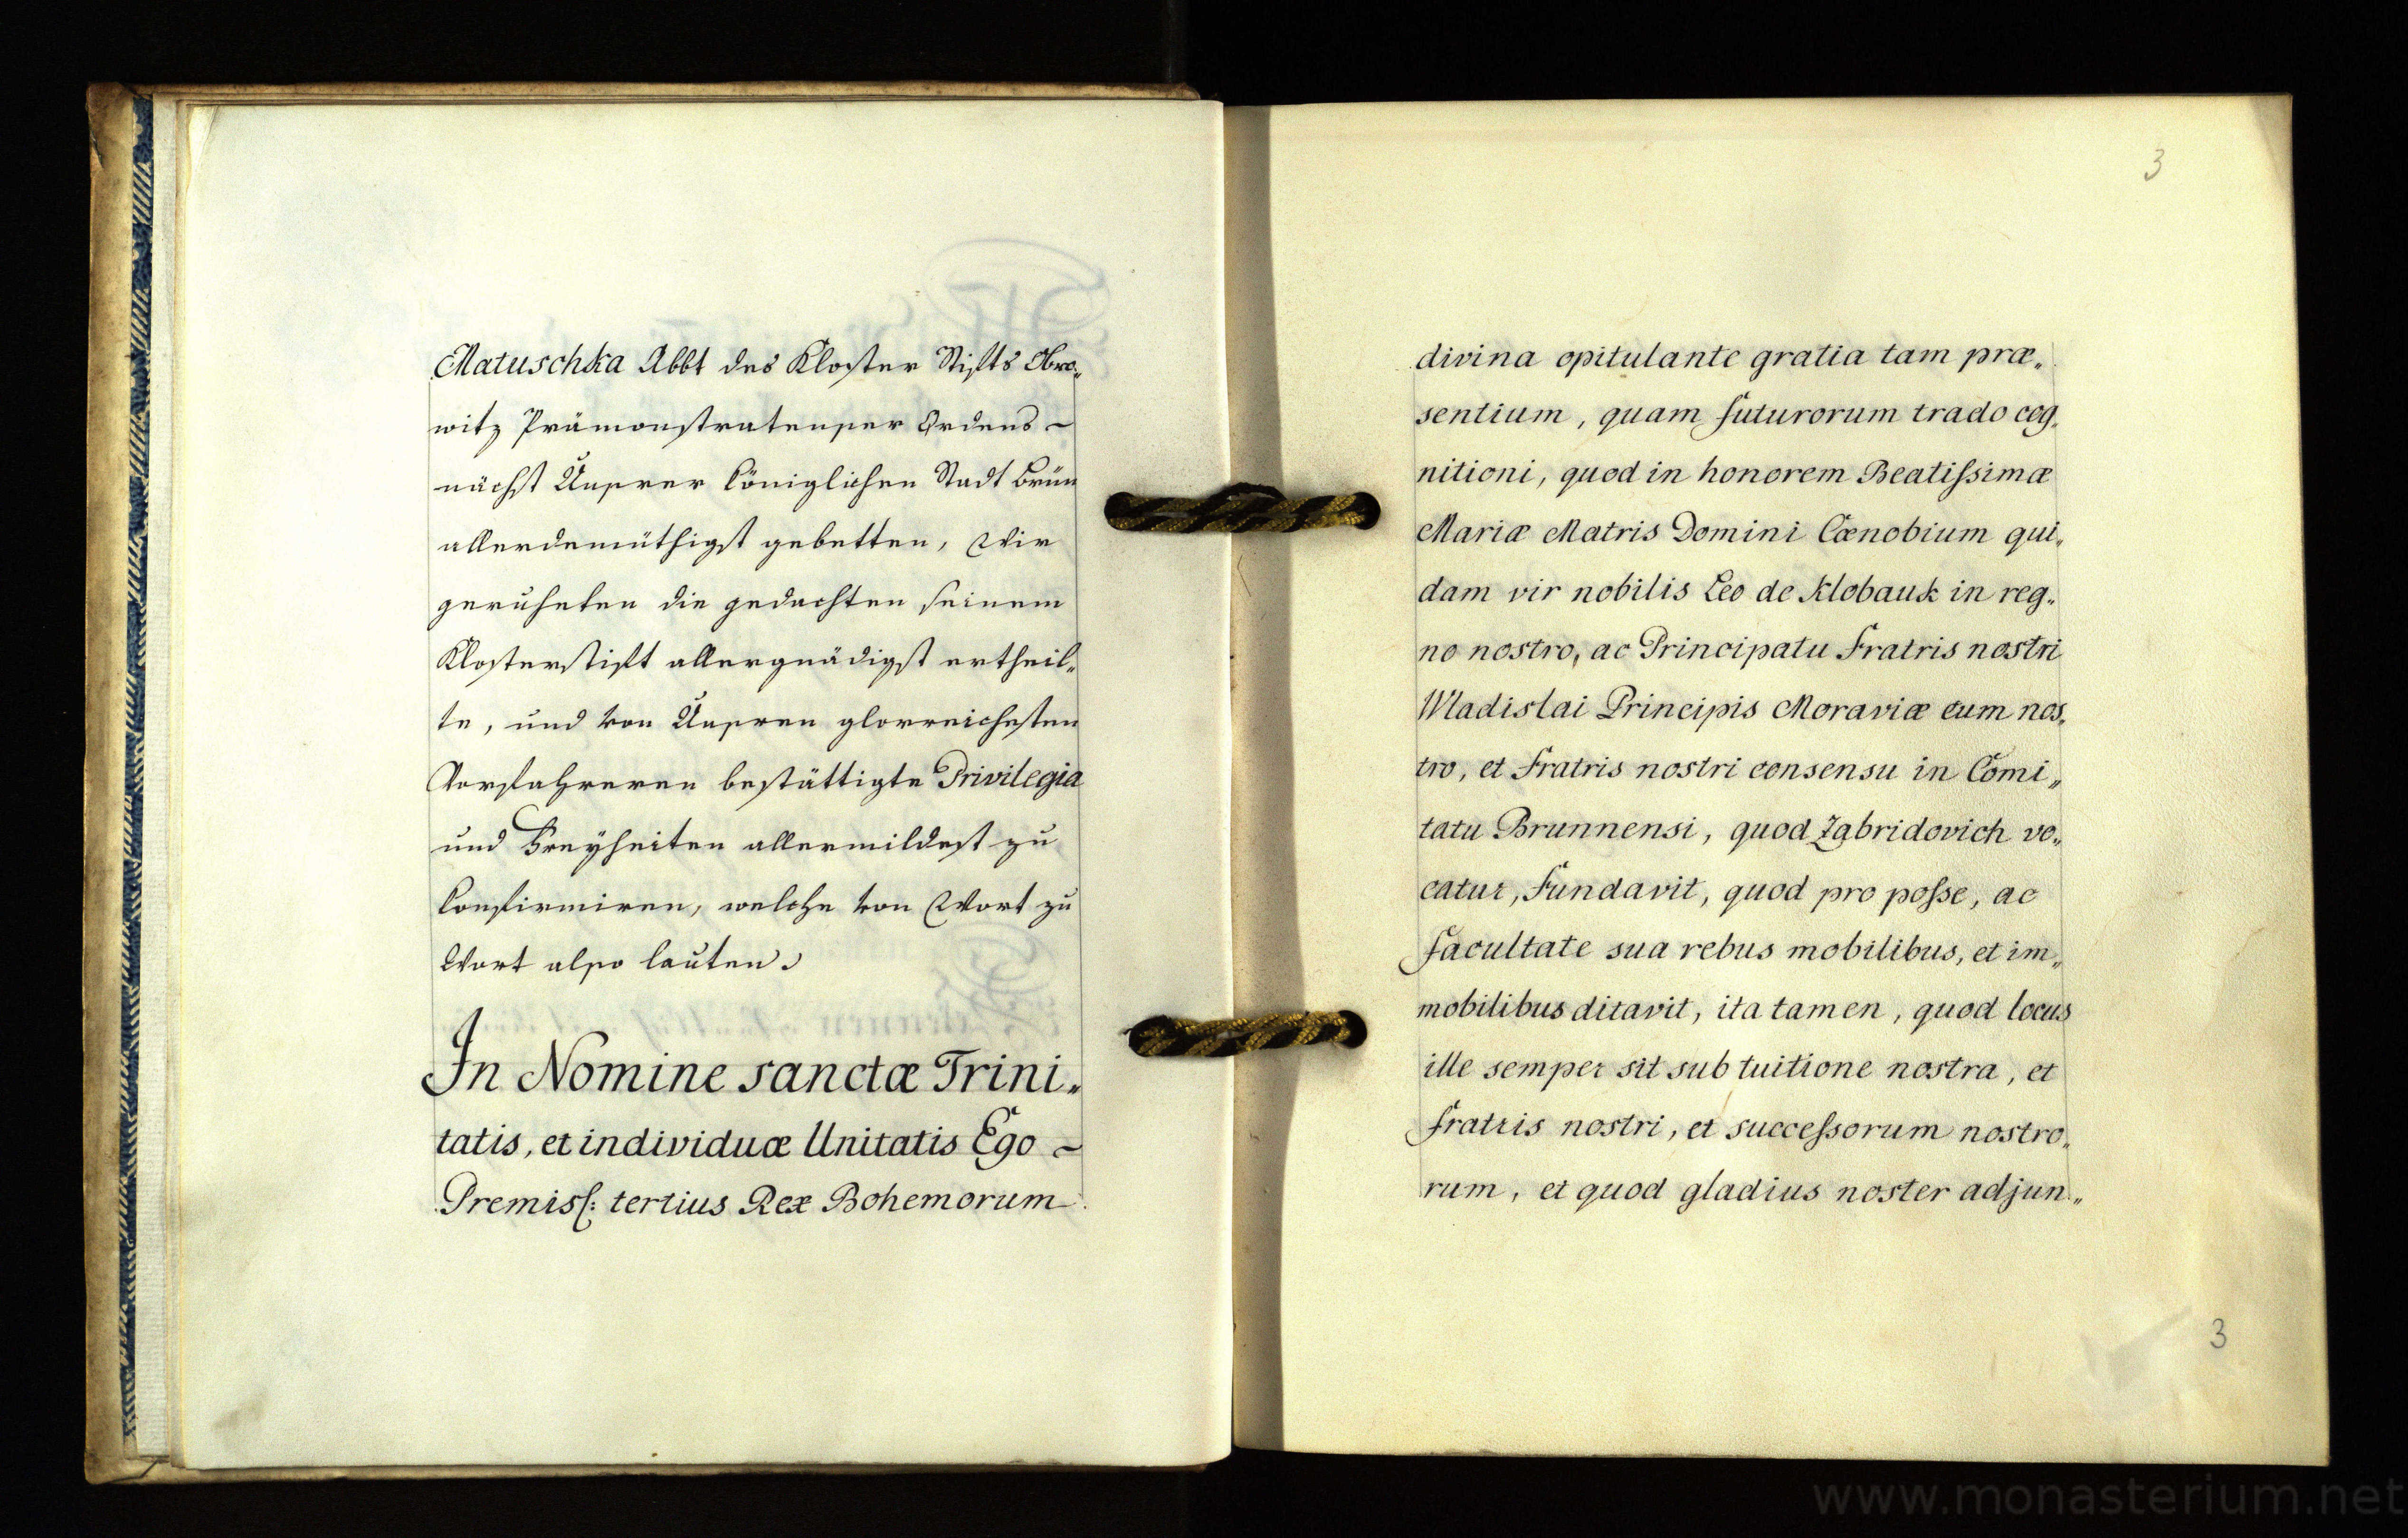 Matuschka Abbt des Kloster Stifts Obro„
witz Prämonstratenser Ordens ~
nächst Unsrer Königlichen Stadt Brün
allerdemüthigst gebetten, Wir
geruheten die gedachten seinem
Klosterstift allergnädigst ertheil„
te, und von Unsren glorreichesten
Vorfahreren bestättigte Privilegia
und Freyheiten allermildest zu
Confirmiren, welche von Wort zu
Wort also lauten.
In Nomine sanctæ Trini„
tatis, et individuæ Unitatis Ego ~
Premisl: tertius Rex Bohemorum
3
divina opitulante gratia tam præ„
sentium, quam futurorum trado cog„
nitioni, quod in honorem Beatiſsimæ
Mariæ Matris Domini Cœnobium qui„
dam vir nobilis Leo de Klobauk in reg„
no nostro, ac Principatu Fratris nostri
Wladislai Principis Moraviæ cum nos„
tro, et Fratris nostri consensu in Comi„
tatu Brunnensi, quod Zabridovich vo„
catur, Fundavit, quod pro poſse, ac
facultate sua rebus mobilibus, et im„
mobilibus ditavit, ita tamen, quod locus
ille semper sit sub tuitione nostra, et
fratris nostri, et succeſsorum nostro„
rum, et quod gladius noster adjun„
3
www.monasterium.net